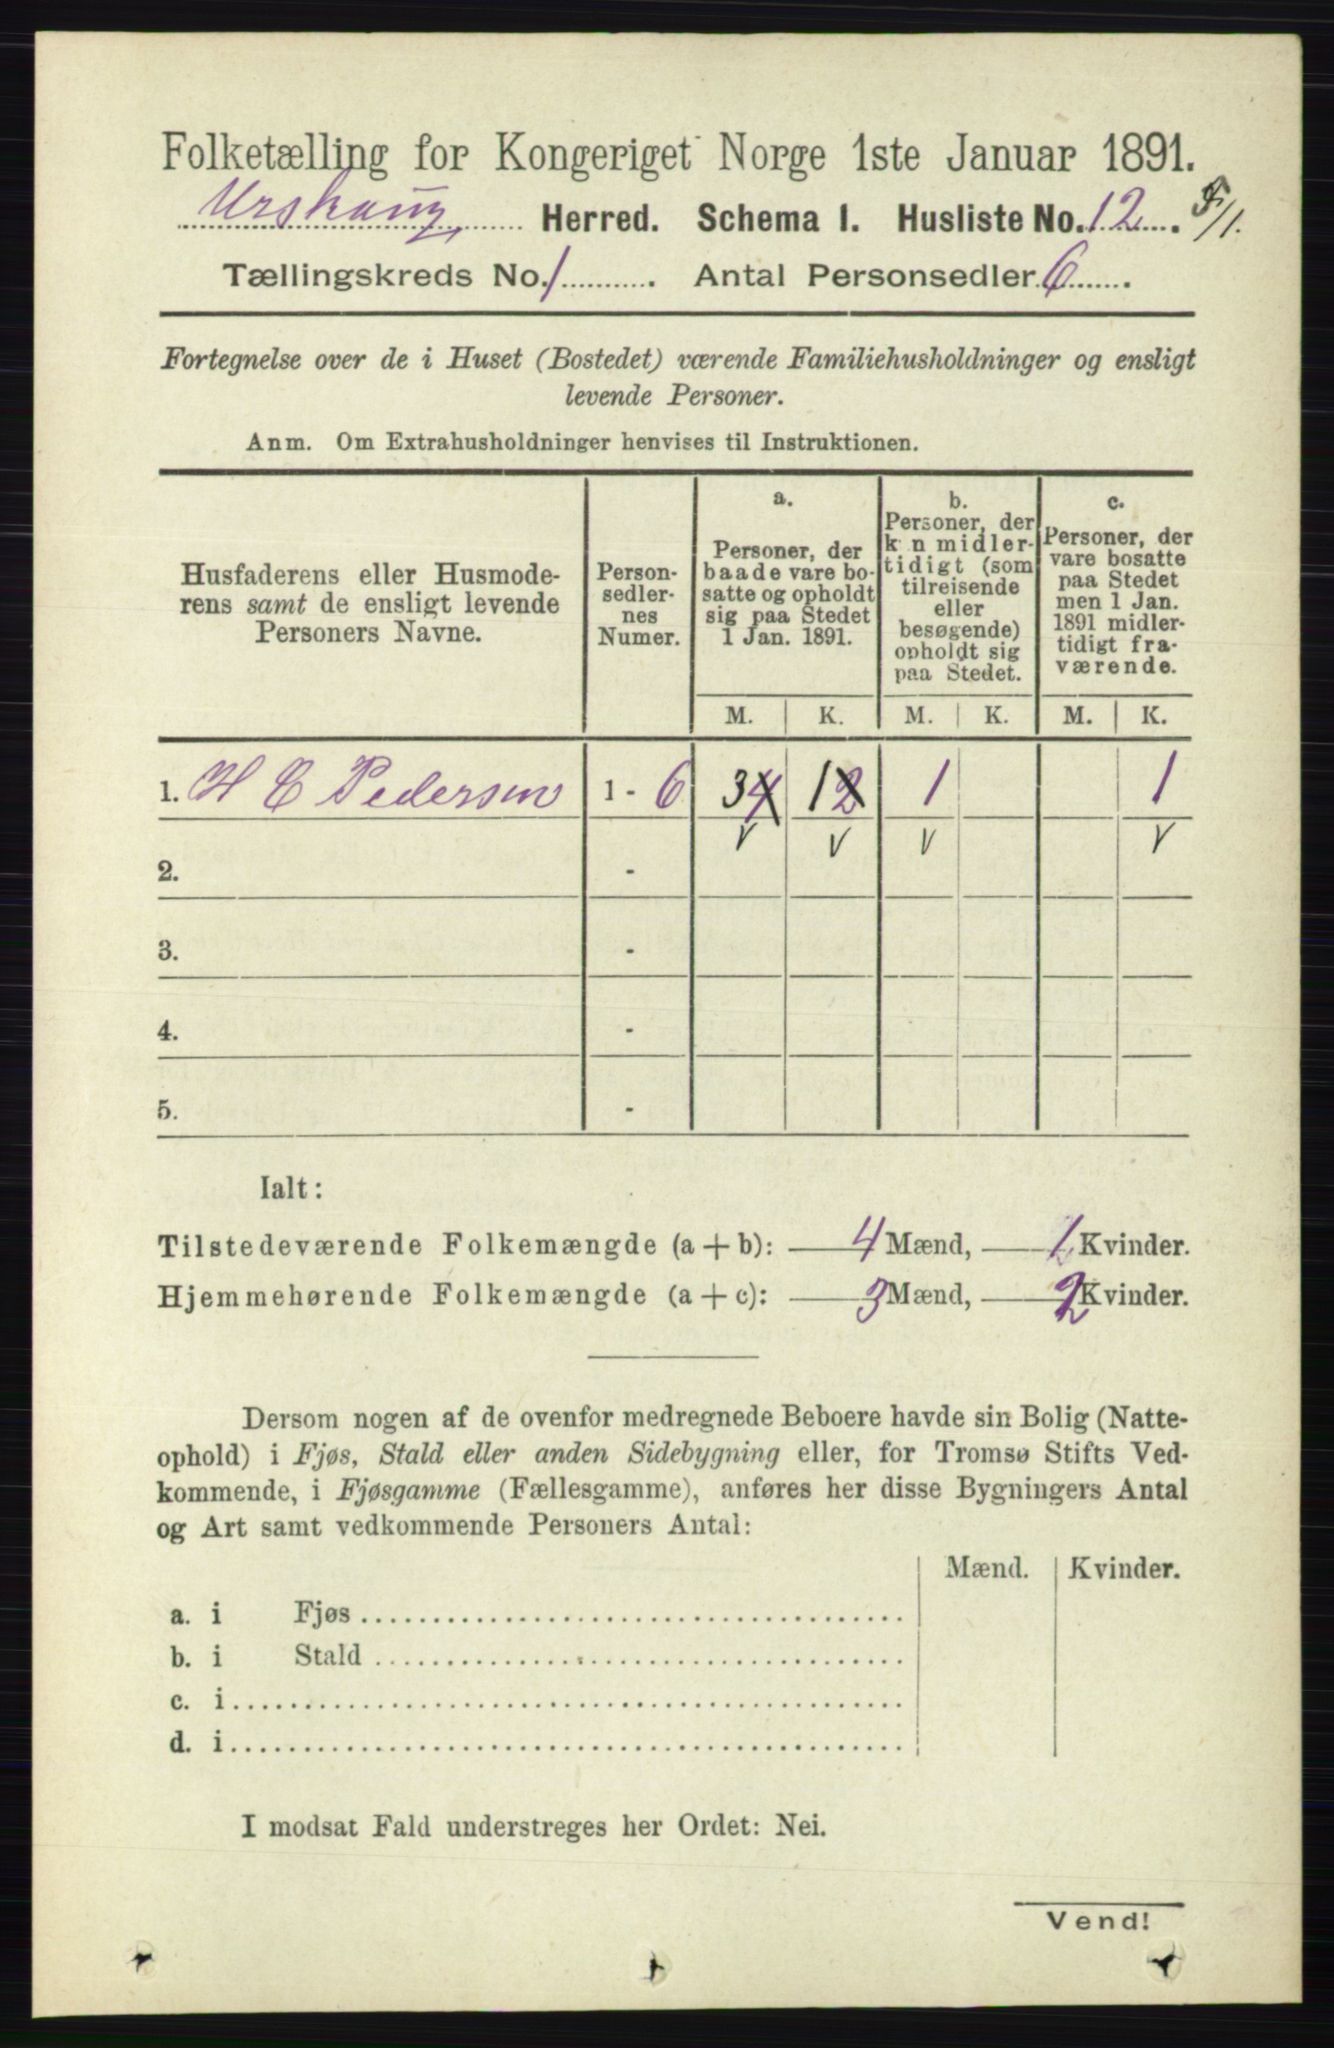 Folketælling for Kongeriget Norge 1ste Januar 1891.
Urskoug Herred. Schema 1. Husliste No. 12. 5/1.
Tællingskreds No. 1. Antal Personsedler 6.
Fortegnelse over de i Huset (Bostedet) værende Familiehusholdninger og ensligt
levende Personer.
Anm. Om Extrahusholdninger henvises til Instruktionen.
Husfaderens eller Husmode-
rens samt de ensligt levende
Personers Navne.
Person-
sedler-
nes
Numer.
a.
Personer, der
baade vare bo-
satte og opholdt
sig paa Stedet
1 Jan. 1891.
b.
Personer, der
k n midler-
tidigt (som
tilreisende
eller
besøgende)
opholdt sig
paa Stedet.
c.
Personer, der
vare bosatte
paa Stedet
men 1 Jan.
1891 midler-
tidigt fra-
værende.
M. K. M. K. M. K.
1. H E Pedersen 1 - 6 3 4 1 2 1 1
V V V V
2. -
3. -
4. -
5. -
Ialt:
Tilstedeværende Folkemængde (a + b): 4 Mænd, 1 Kvinder.
Hjemmehørende Folkemængde (a + c): 3 Mænd, 2 Kvinder.
Dersom nogen af de ovenfor medregnede Beboere havde sin Bolig (Natte-
ophold) i Fjøs, Stald eller anden Sidebygning eller, for Tromsø Stifts Ved-
kommende, i Fjøsgamme (Fællesgamme), anføres her disse Bygningers Antal
og Art samt vedkommende Personers Antal:
Mænd. Kvinder.
a. i Fjøs
b. i Stald
c. i
d. i
I modsat Fald understreges her Ordet: Nei.
Vend!